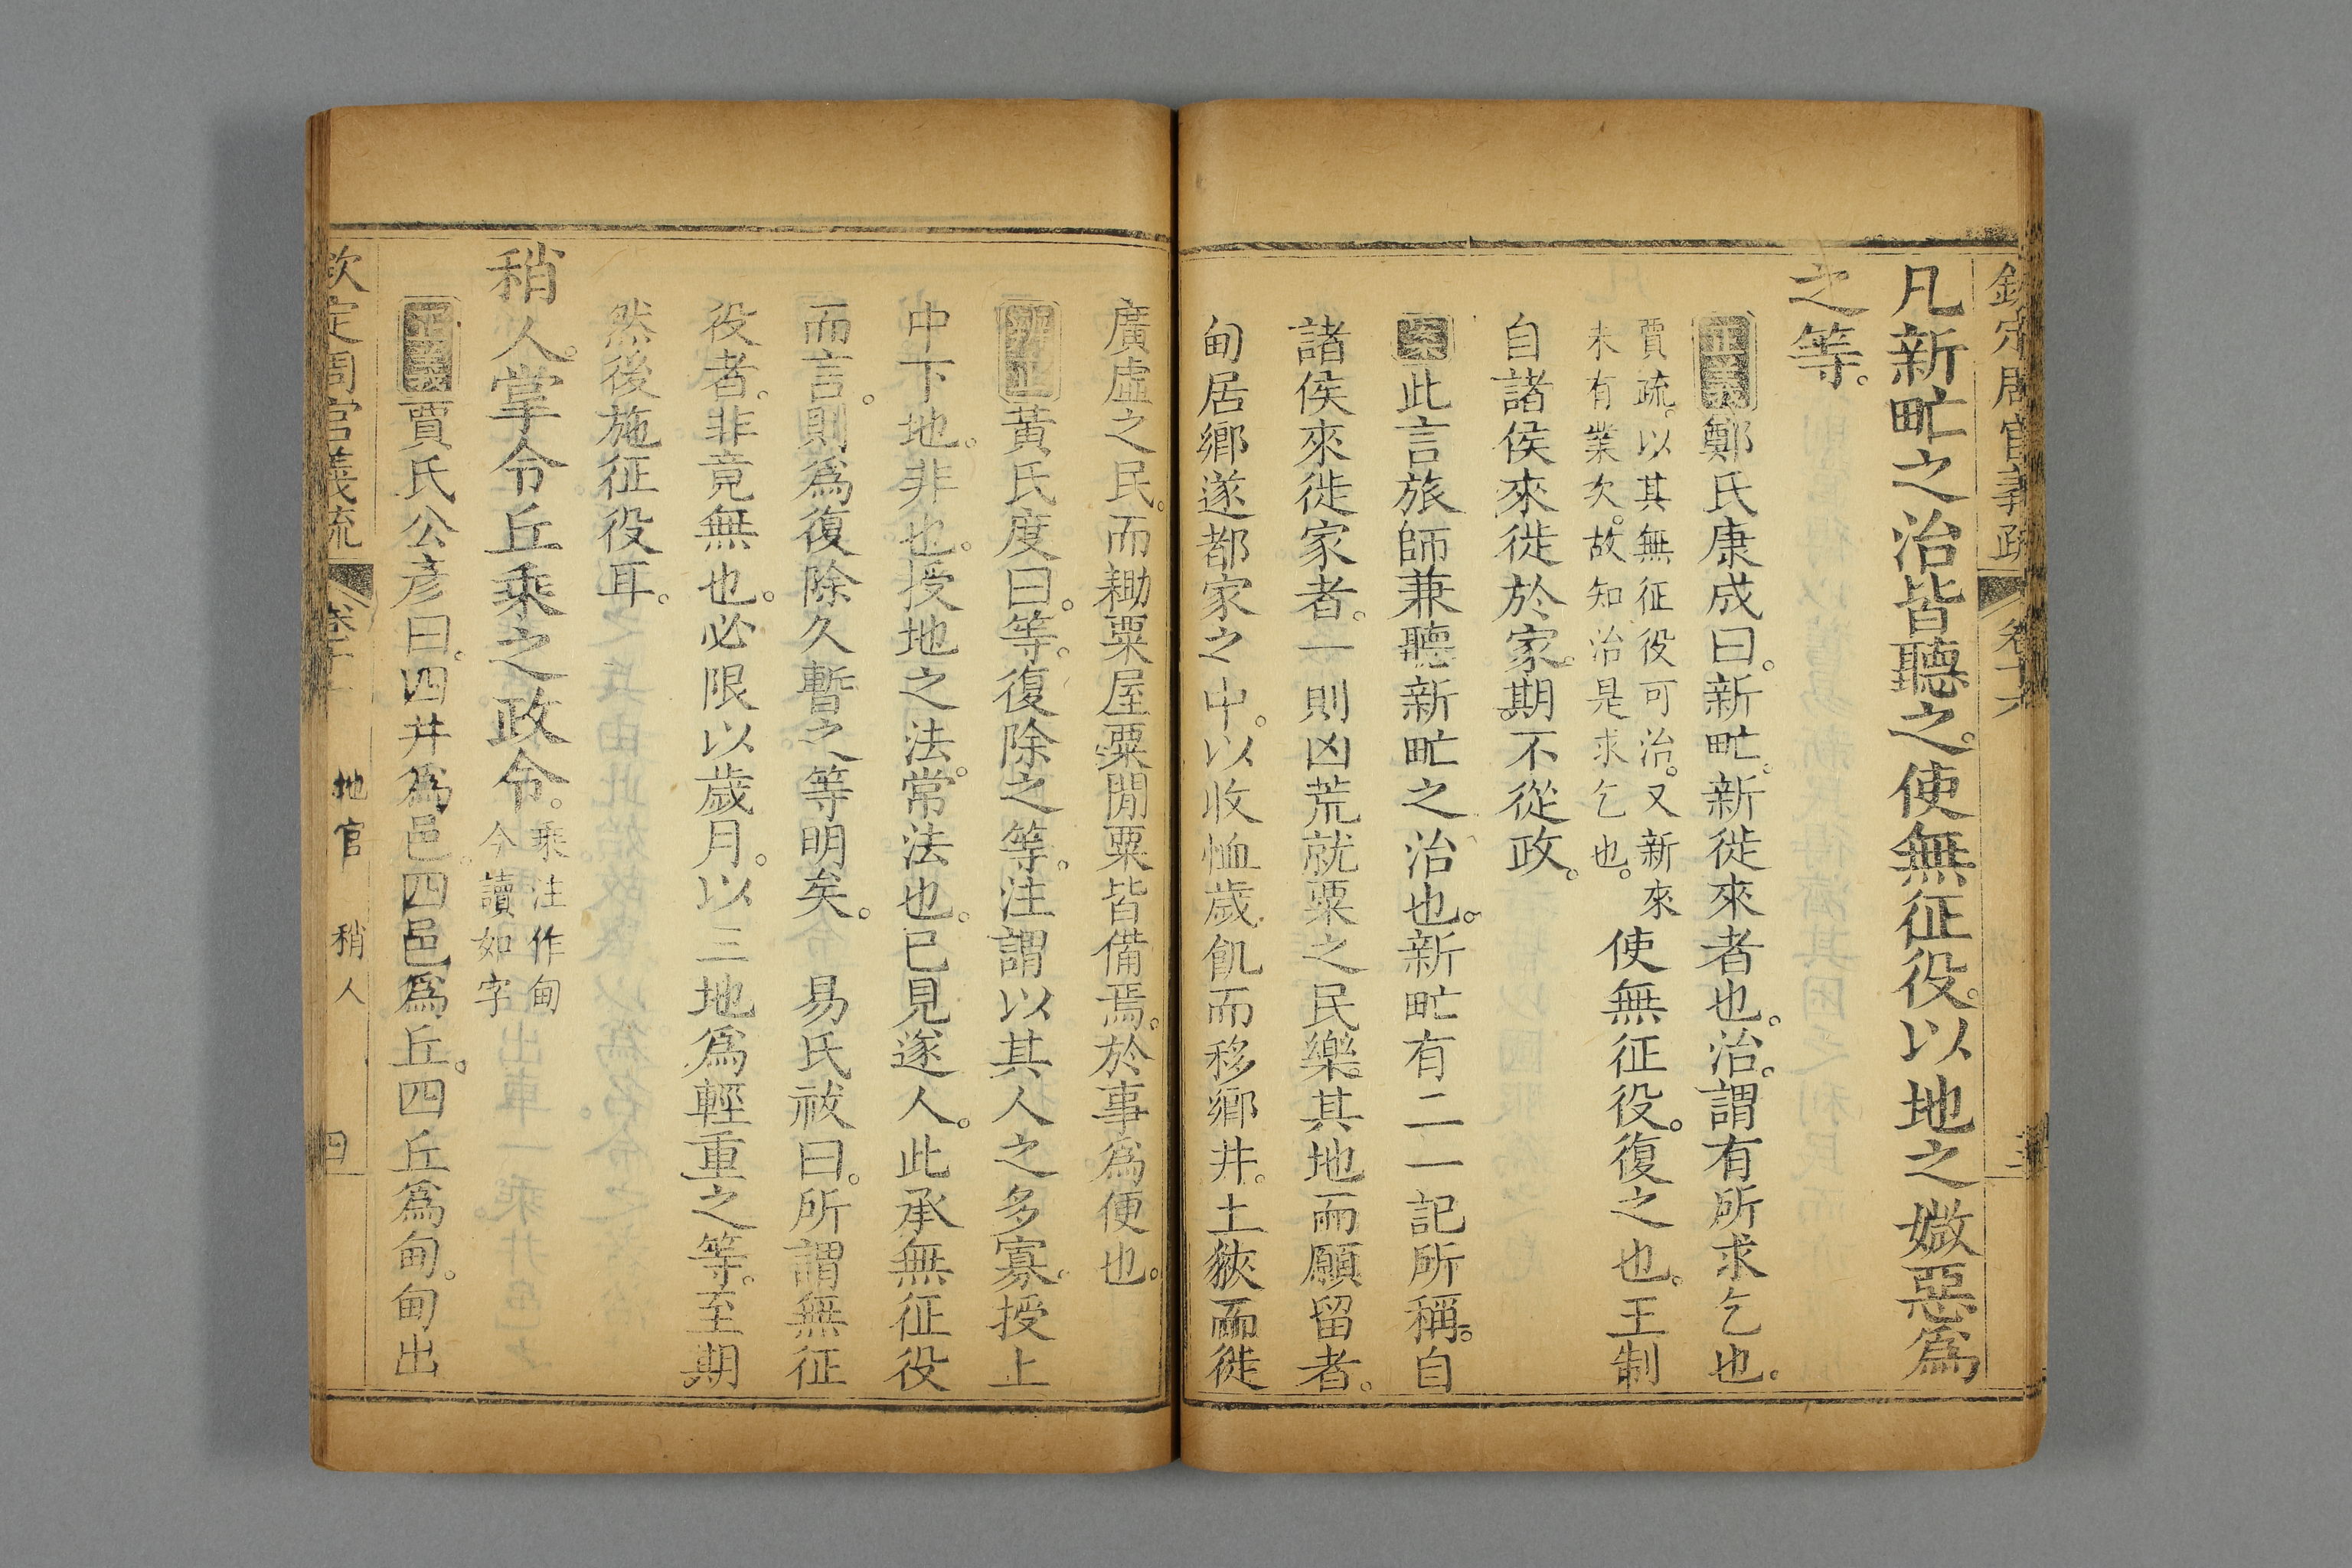 欽定周官義疏 卷十六
凡新甿之治皆聽之。使無征役。以地之媺惡爲
之等。
正義鄭氏康成曰。新甿。新徙來者也。治。謂有所求乞也。
賈疏。以其無征役可治。又新來
未有業次。故知治是求乞也。
使無征役。復之也。王制
自諸侯來徙於家。期不從政。
案此言旅師兼聽新甿之治也。新甿有二一記所稱。自
諸侯來徙家者。一則凶荒就粟之民樂其地而願留者。
甸居鄉遂都家之中。以收恤歲飢而移鄉井。土狹而徙
廣虛之民。而耡粟屋粟閒粟皆備焉。於事爲便也。
辨正黃氏度曰。等。復除之等。注謂以其人之多寡。授上
中下地。非也。授地之法。常法也。已見遂人。此承無征役
而言。則爲復除久暫之等明矣。 易氏祓曰。所謂無征
役者。非竟無也。必限以歲月。以三地爲輕重之等。至期
然後施征役耳。
稍人。掌令丘乘之政令。
乘注作甸
今讀如字
正義賈氏公彥曰。四井爲邑。四邑爲丘。四丘爲甸。甸出
欽定周官義疏
地官 稍人